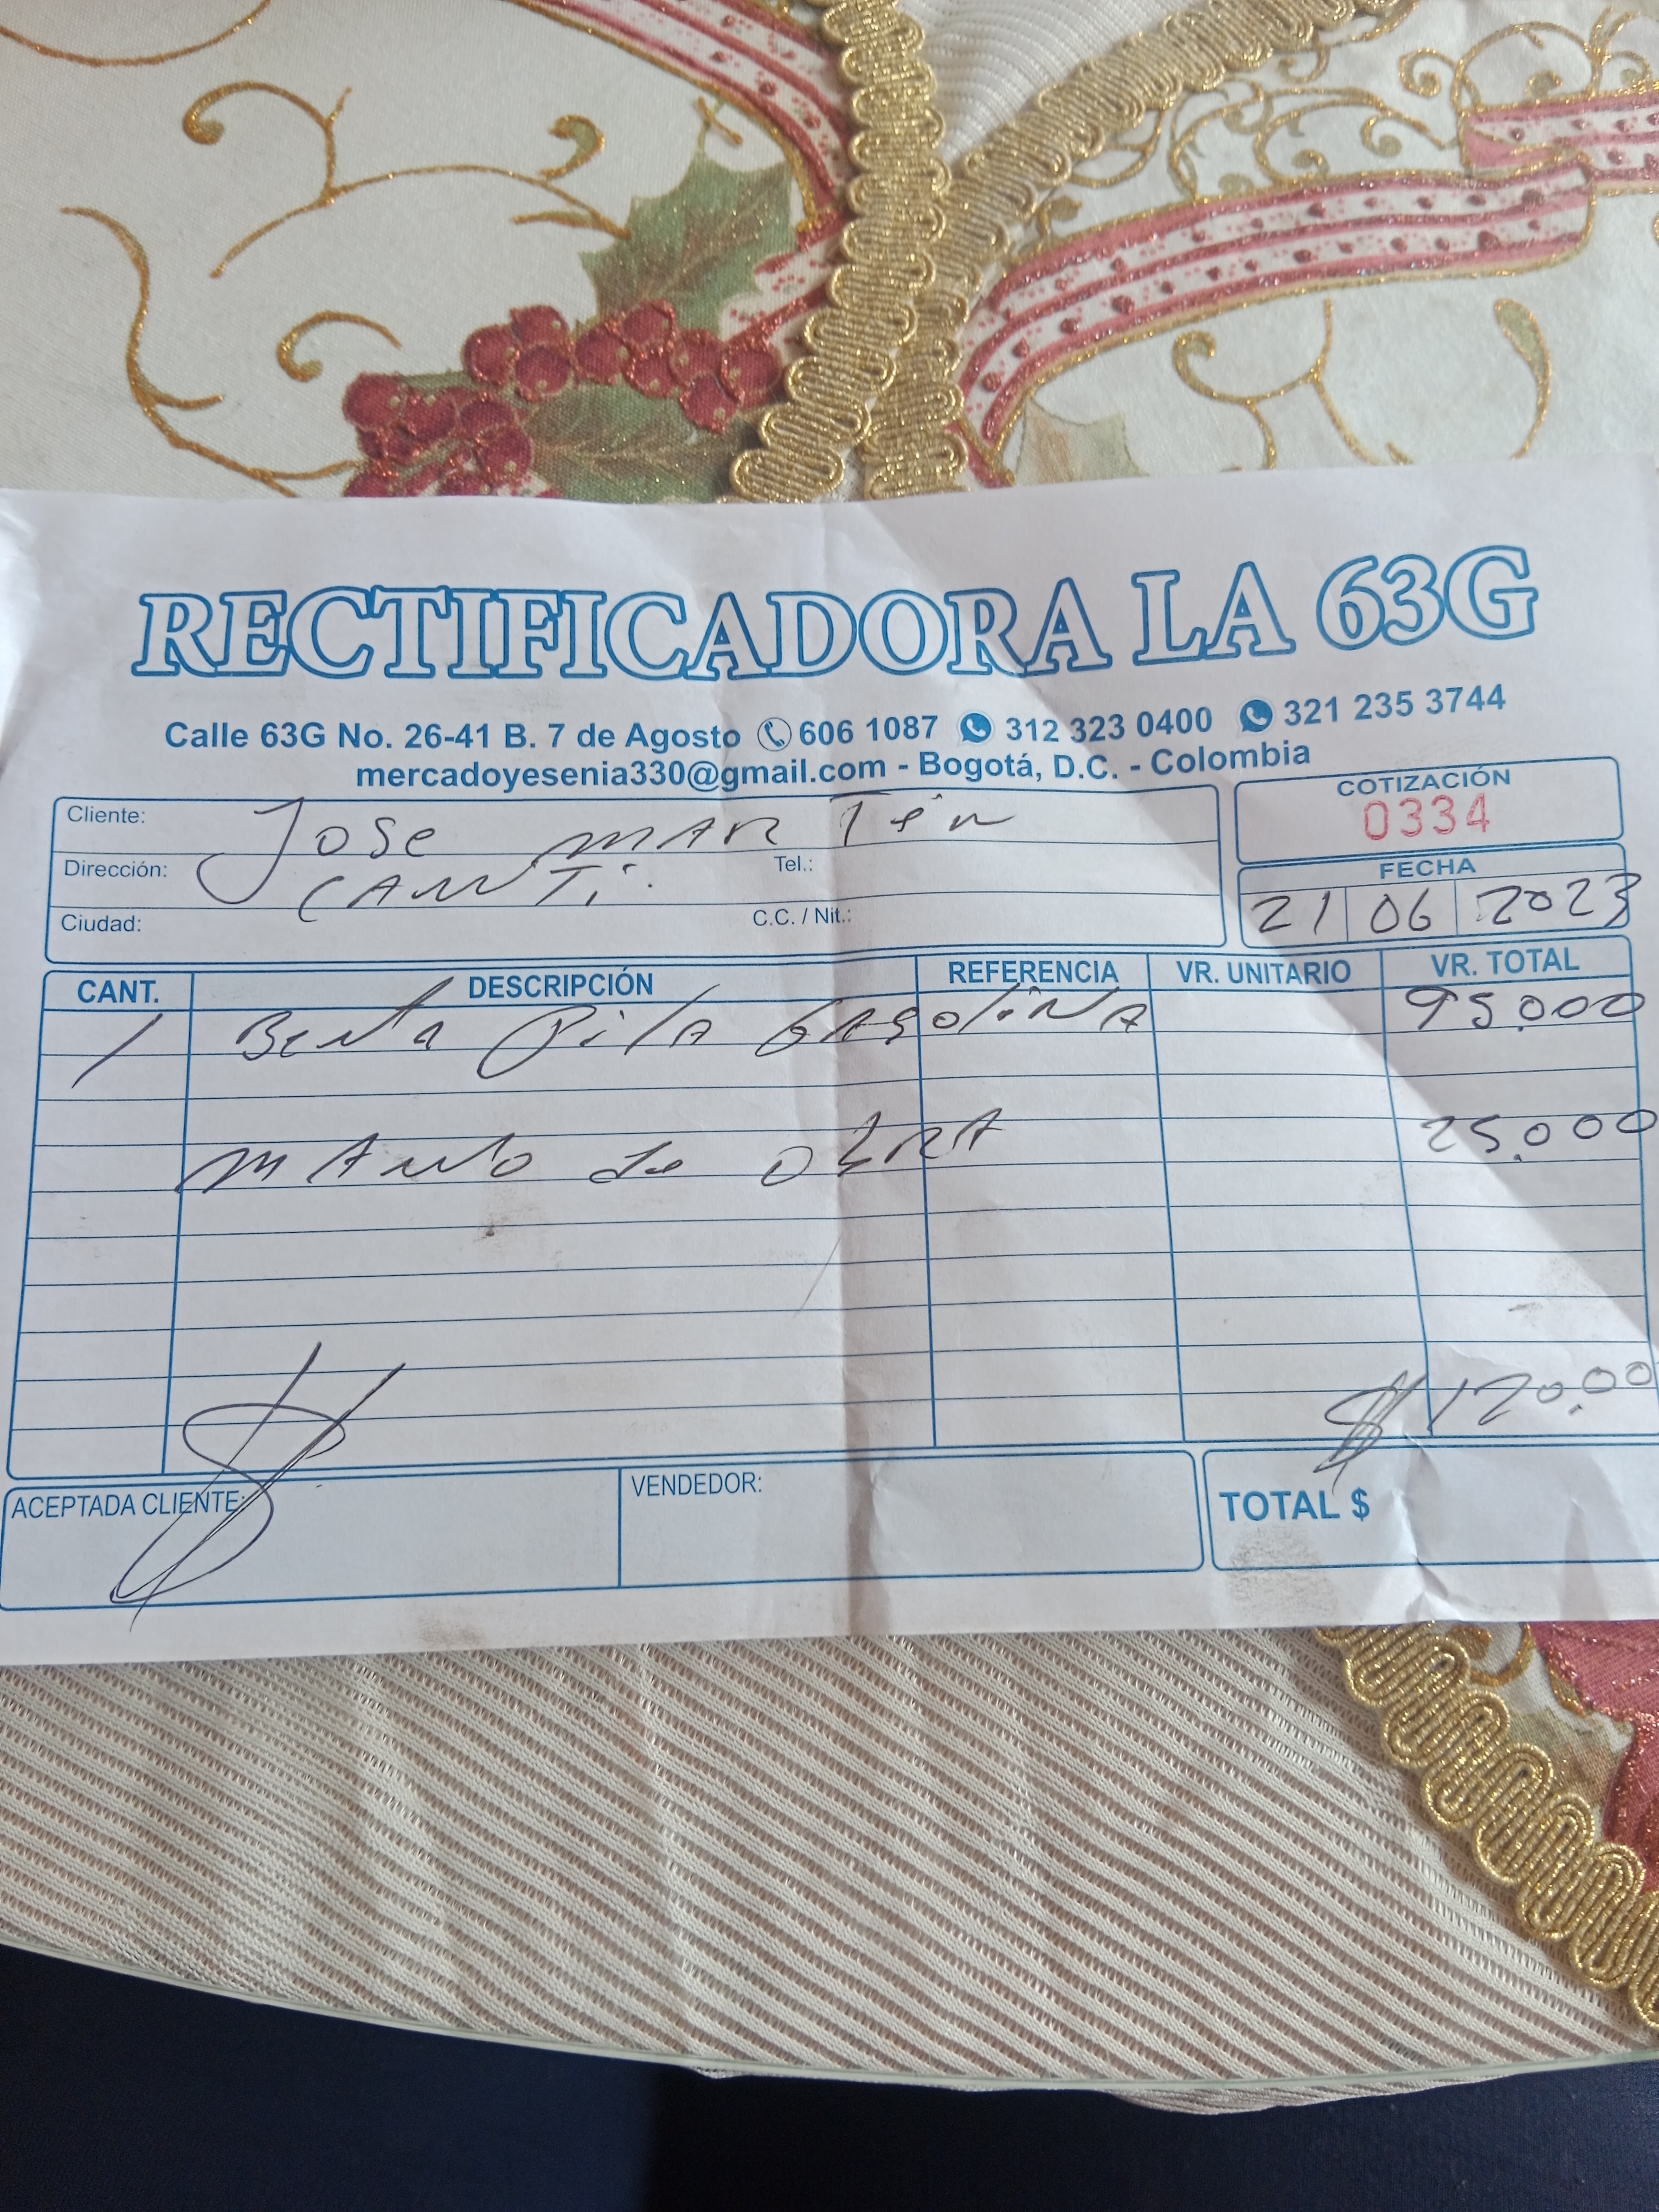 RECTIFICADORA LA 63G
Calle 63G No. 26-41 B. 7 de Agosto 606 1087 312 323 0400 321 235 3744
mercadoyesenia330@gmail.com - Bogotá, D.C. - Colombia
COTIZACIÓN
0334
Cliente: Jose MARTin
Dirección: Tel.:
Ciudad: C.C. / Nit.:
FECHA
21 06 2023
CANT. DESCRIPCIÓN REFERENCIA VR. UNITARIO VR. TOTAL
1 Benta Pila GASoliNA 95.000
MANo de obRA 25.000
$ 120.00
ACEPTADA CLIENTE: VENDEDOR: TOTAL $